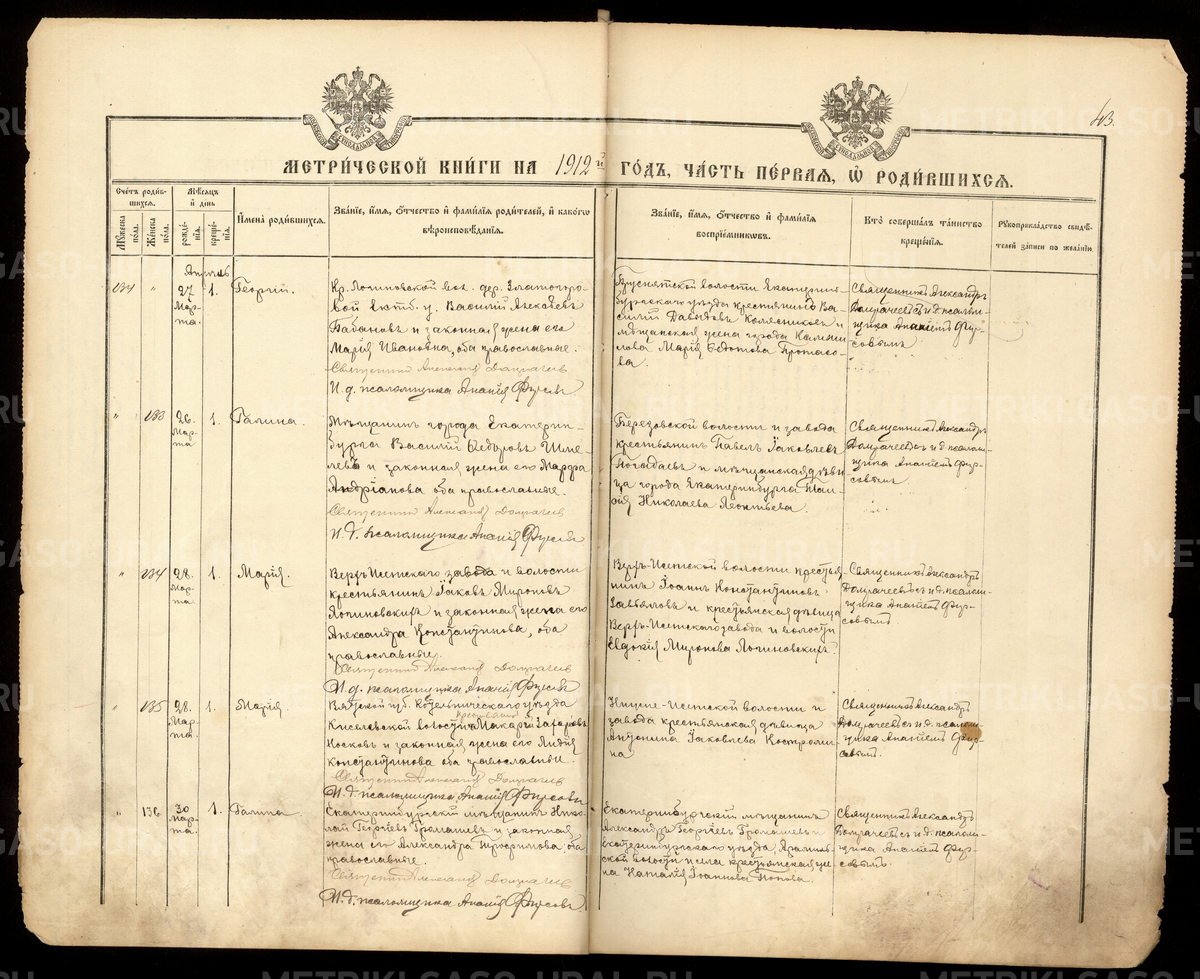 43.
МЕТРИЧЕСКОЙ КНИГИ НА 1912й ГОДЪ, ЧАСТЬ ПЕРВАЯ, Ѡ РОДИВШИХСЯ.
Счетъ родившихся.
Мужеска пола.
Женска пола.
Мѣсяцъ и день
рожденія.
крещенія.
Имена родившихся.
Званіе, имя, отчество и фамилія родителей, и какого
вѣроисповѣданія.
Званіе, имя, отчество и фамилія
воспріемниковъ.
Кто совершалъ таинство
крещенія.
Рукоприкладство свидѣ-
телей записи по желанію.
Апрѣль
134 " 27 Мар-та. 1. Георгій.
Кр. Логиновской вол. дер. Златогоро-
вой Екатб. у. Василий Алексѣевъ
Бабановъ и законная жена его
Марія Ивановна, оба православные.
Священникъ Александръ Домрачевъ
И. д. псаломщика Ананій Фирсовъ
волости Екатерин-
бургскаго уѣзда крестьянинъ Ва-
силій Давыдовъ Колясниковъ и
мѣщанская жена города Камыш-
лова Марія Федотова Протасо-
ва.
Священникъ Александръ
Домрачевъ съ и. д. псалом-
щика Ананіемъ Фир-
совымъ
" 133 26. Мар-та 1. Галина.
Мѣщанинъ города Екатерин-
бурга Василій Ѳедоровъ Шме-
левъ и законная жена его Марфа
Андріанова оба православные.
Священникъ Александръ Домрачевъ
И. д. псаломщика Ананій Фирсовъ
Березовской волости и завода
крестьянинъ Павелъ Іаковлевъ
и мѣщанская дѣви-
ца города Екатеринбурга Таи-
сія Николаева Леонтьева.
Священникъ Александръ
Домрачевъ съ и. д. псалом-
щика Ананіемъ Фир-
совымъ.
" 134 28. Мар-та. 1. Марія.
Верхъ-Исетскаго завода и волости
крестьянинъ Іаковъ Мироновъ
Логиновскихъ и законная жена его
Александра Константинова, оба
православные.
Священникъ Александръ Домрачевъ
И. д. псаломщика Ананій Фирсовъ
Верхъ-Исетской волости крестья-
нинъ Іоаннъ Константиновъ
Завьяловъ и крестьянская дѣвица
Верхъ-Исетскаго завода и волости
Евдокія Миронова Логиновскихъ
Священникъ Александръ
Домрачевъ съ и. д. псалом-
щика Ананіемъ Фир-
совымъ.
" 135 28. Мар-та. 1. Марія.
Вятской губ. Котельническаго уѣзда
Киселевской волости крестьянинъ Макарій Захаровъ
Носковъ и законная жена его Лидія
Константинова оба православные.
Священникъ Александръ Домрачевъ
И. д. псаломщика Ананій Фирсовъ
Нижне-Исетской волости и
завода крестьянская дѣвица
Антонина Іаковлева Костроми-
на
Священникъ Александръ
Домрачевъ съ и. д. псалом-
щика Ананіемъ Фир-
совымъ.
" 136 30 Мар-та. 1. Галина.
Екатеринбургскій мѣщанинъ Нико-
лай Георгіевъ Громашевъ и законная
жена его Александра Трофимова, оба
православные.
Священникъ Александръ Домрачевъ
И. д. псаломщика Ананій Фирсовъ
Екатеринбургскій мѣщанинъ
Александръ Георгіевъ Громашевъ и
Екатеринбургскаго уѣзда, Арамиль-
ской волости и села крестьянская же-
на Наталія Іоаннова Попова.
Священникъ Александръ
Домрачевъ съ и. д. псалом-
щика Ананіемъ Фир-
совымъ.
METRIKI.GASO-URAL.RU